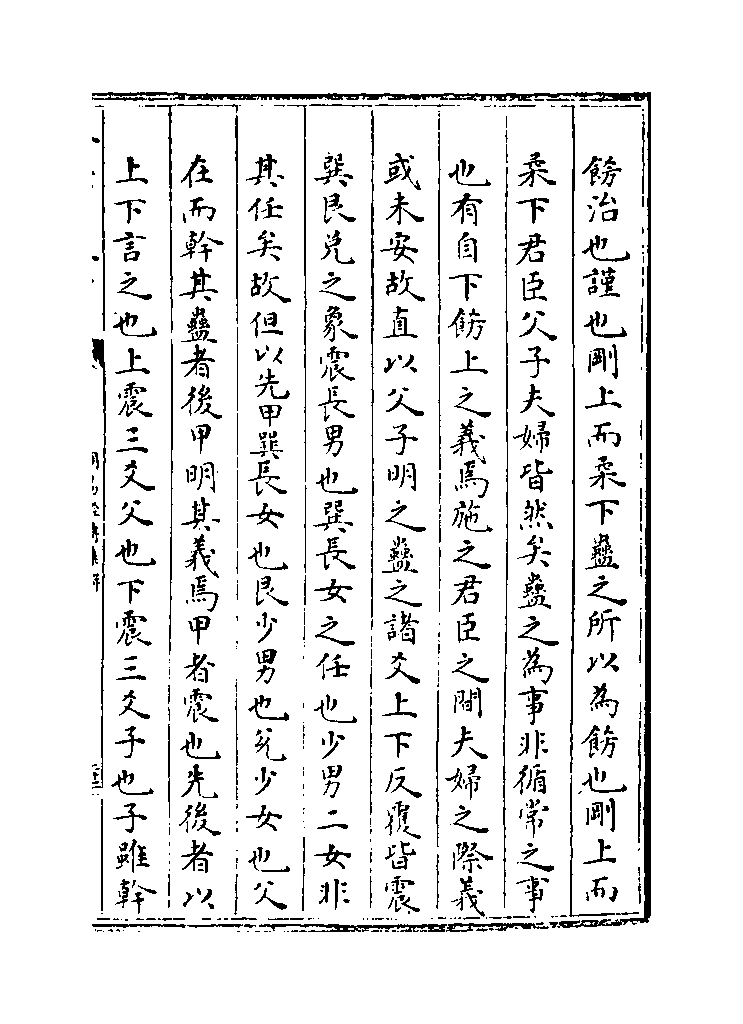 飭治也謹也剛上而柔下蠱之所以為飭也剛上而
柔下君臣父子夫婦皆然矣蠱之為事非循常之事
也有自下飭上之義焉施之君臣之間夫婦之際義
或未安故直以父子明之蠱之諸爻上下反覆皆震
巽艮兌之象震長男也巽長女之任也少男二女非
其任矣故但以先甲巽長女也艮少男也兌少女也父
在而幹其蠱者後甲明其義焉甲者震也先後者以
上下言之也上震三爻父也下震三爻子也子雖幹